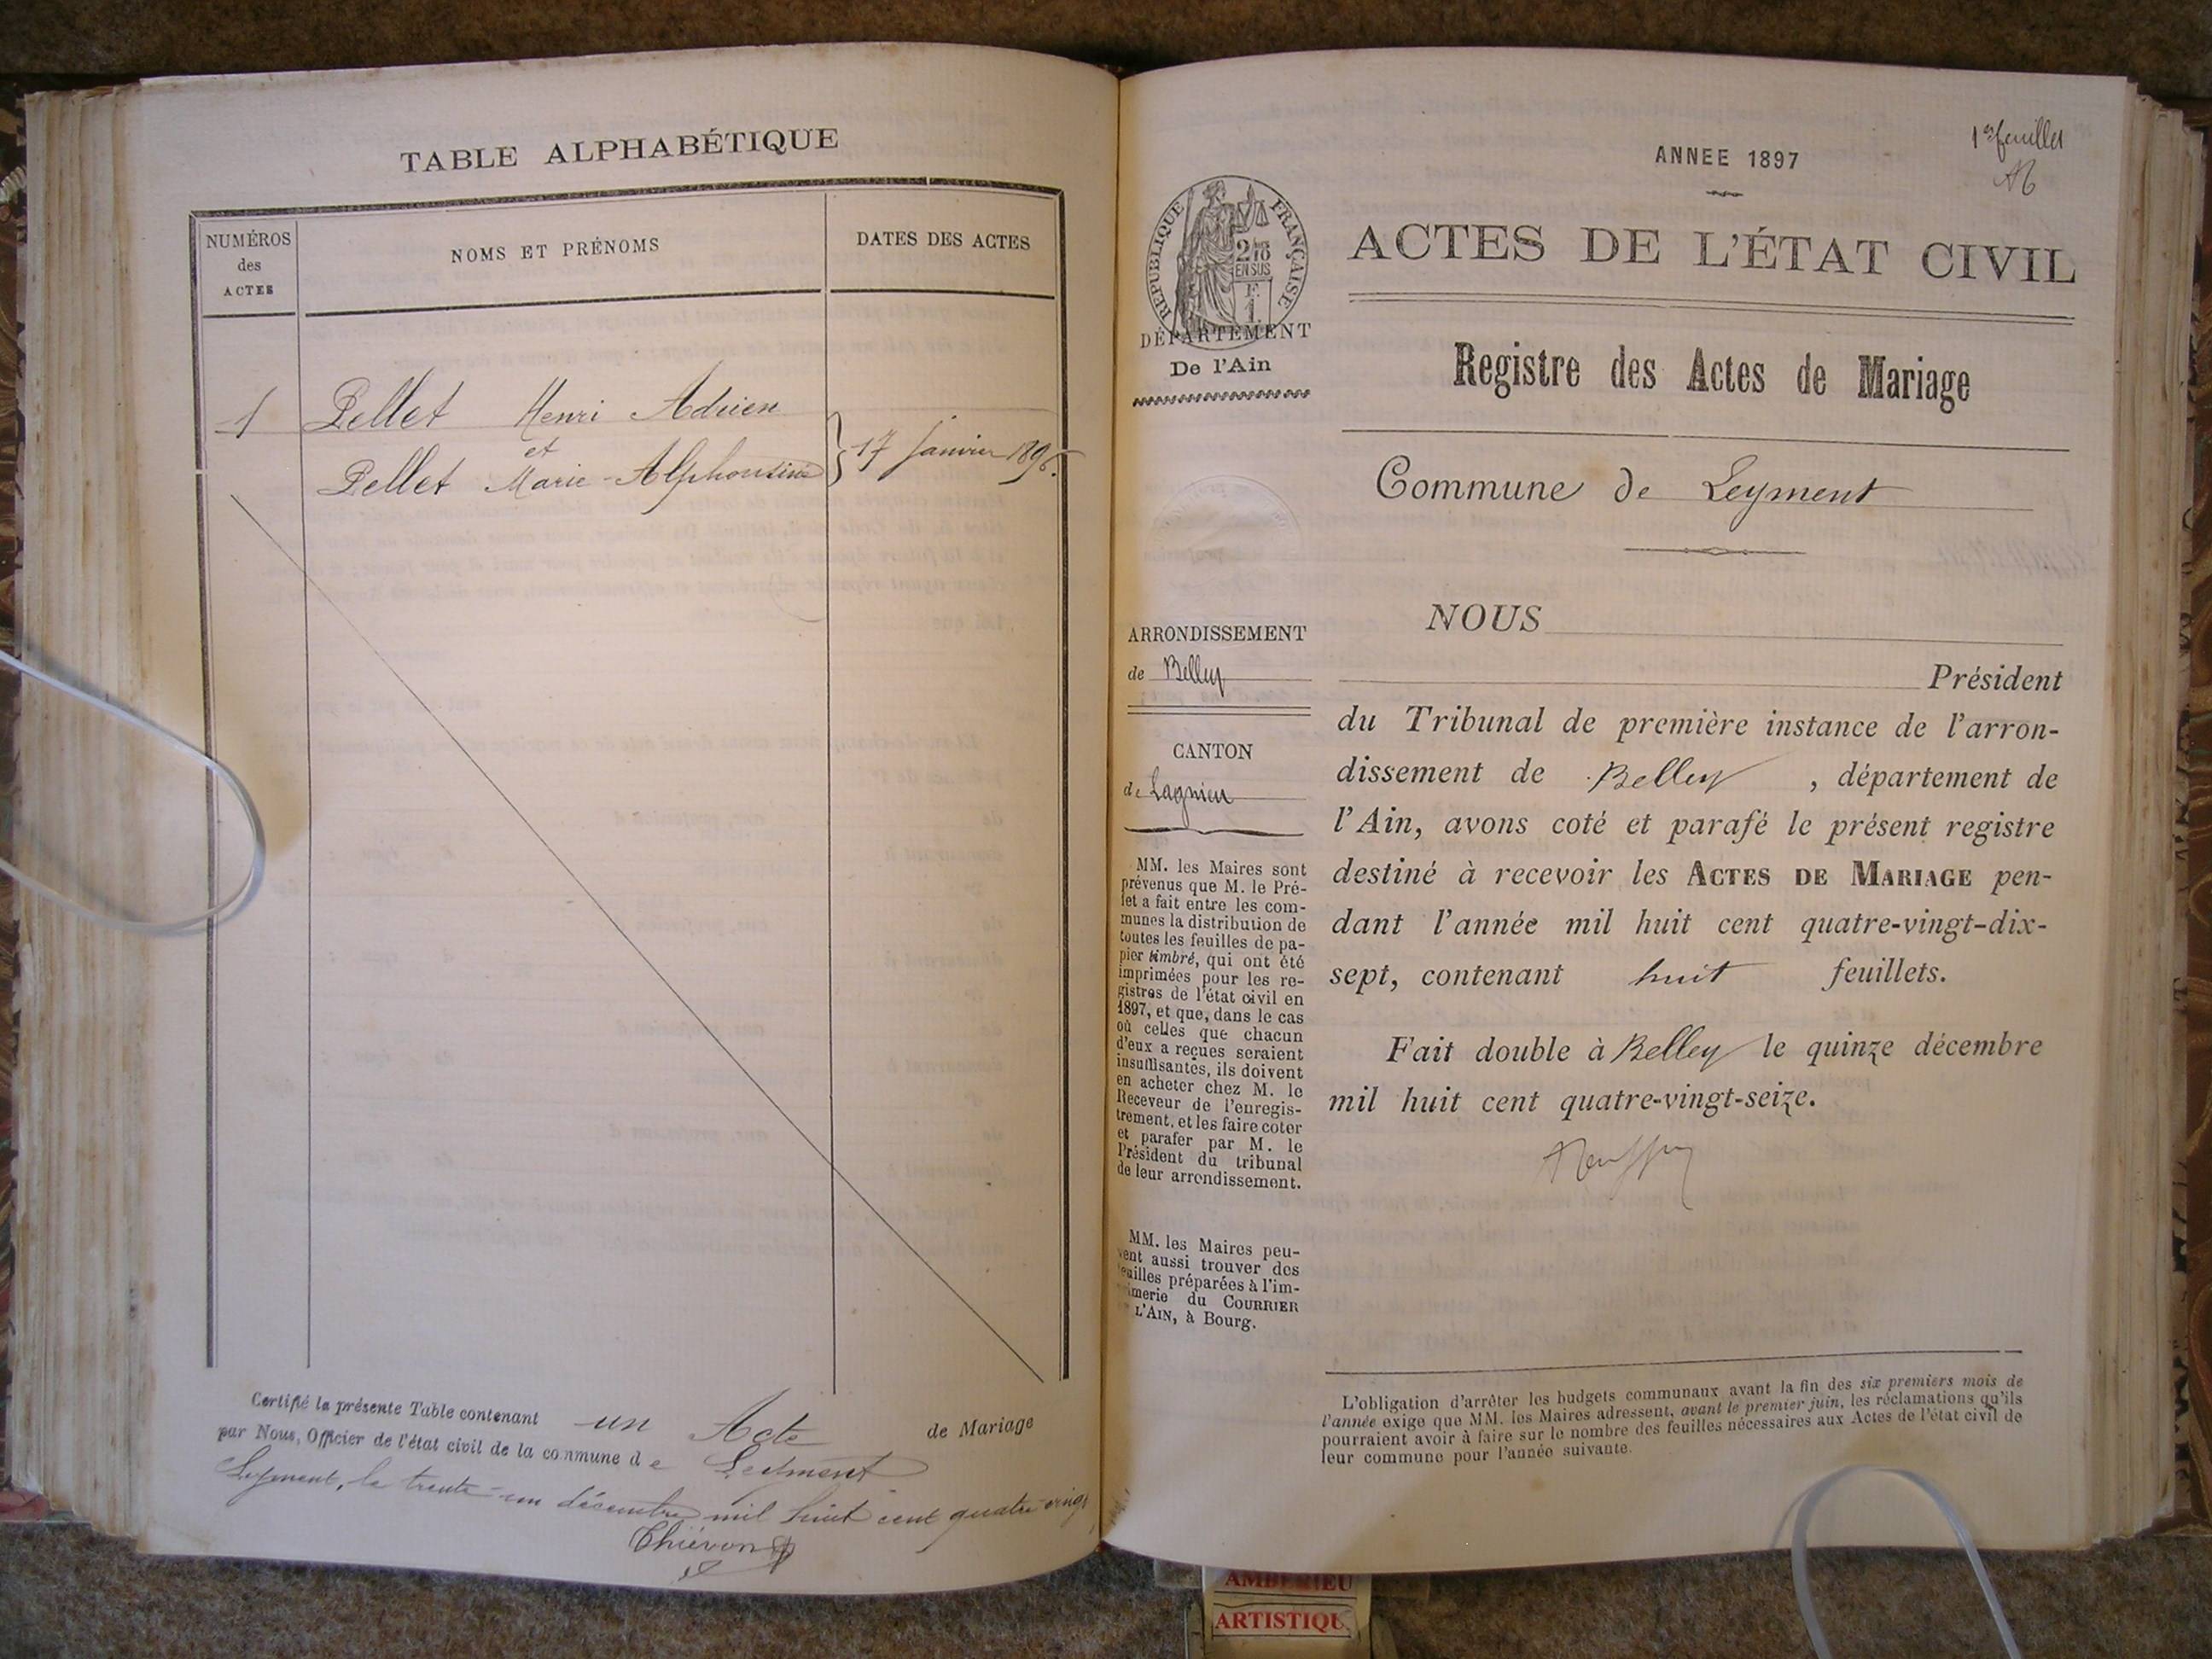 TABLE ALPHABÉTIQUE
NUMÉROS
des
ACTES
NOMS ET PRÉNOMS
DATES DES ACTES
1
Pellet Henri Adrien
et
Pellet Marie-Alphonsine
} 17 janvier 189
Certifié la présente Table contenant un Acte de Mariage
par Nous, Officier de l'état civil de la commune de Leyment
Leyment, le trente-un décembre mil huit cent quatre-vingt
Thiévon
1er feuillet
ANNEE 1897
RÉPUBLIQUE FRANÇAISE
2/10
EN SUS
F.
1.
DÉPARTEMENT
De l'Ain
ACTES DE L'ÉTAT CIVIL
Registre des Actes de Mariage
Commune de Leyment
ARRONDISSEMENT
de Belley
CANTON
de Lagnieu
MM. les Maires sont
prévenus que M. le Pré-
fet a fait entre les com-
munes la distribution de
toutes les feuilles de pa-
pier timbré, qui ont été
imprimées pour les re-
gistres de l'état civil en
1897, et que, dans le cas
où celles que chacun
d'eux a reçues seraient
insuffisantes, ils doivent
en acheter chez M. le
Receveur de l'enregis-
trement, et les faire coter
et parafer par M. le
Président du tribunal
de leur arrondissement.
MM. les Maires peu-
vent aussi trouver des
feuilles préparées à l'im-
imerie du COURRIER
L'AIN, à Bourg.
NOUS
Président
du Tribunal de première instance de l'arron-
dissement de Belley, département de
l'Ain, avons coté et parafé le présent registre
destiné à recevoir les ACTES DE MARIAGE pen-
dant l'année mil huit cent quatre-vingt-dix-
sept, contenant huit feuillets.
Fait double à Belley le quinze décembre
mil huit cent quatre-vingt-seize.
L'obligation d'arrêter les budgets communaux avant la fin des six premiers mois de
l'année exige que MM. les Maires adressent, avant le premier juin, les réclamations qu'ils
pourraient avoir à faire sur le nombre des feuilles nécessaires aux Actes de l'état civil de
leur commune pour l'année suivante.
AMBERIEU
ARTISTIQU